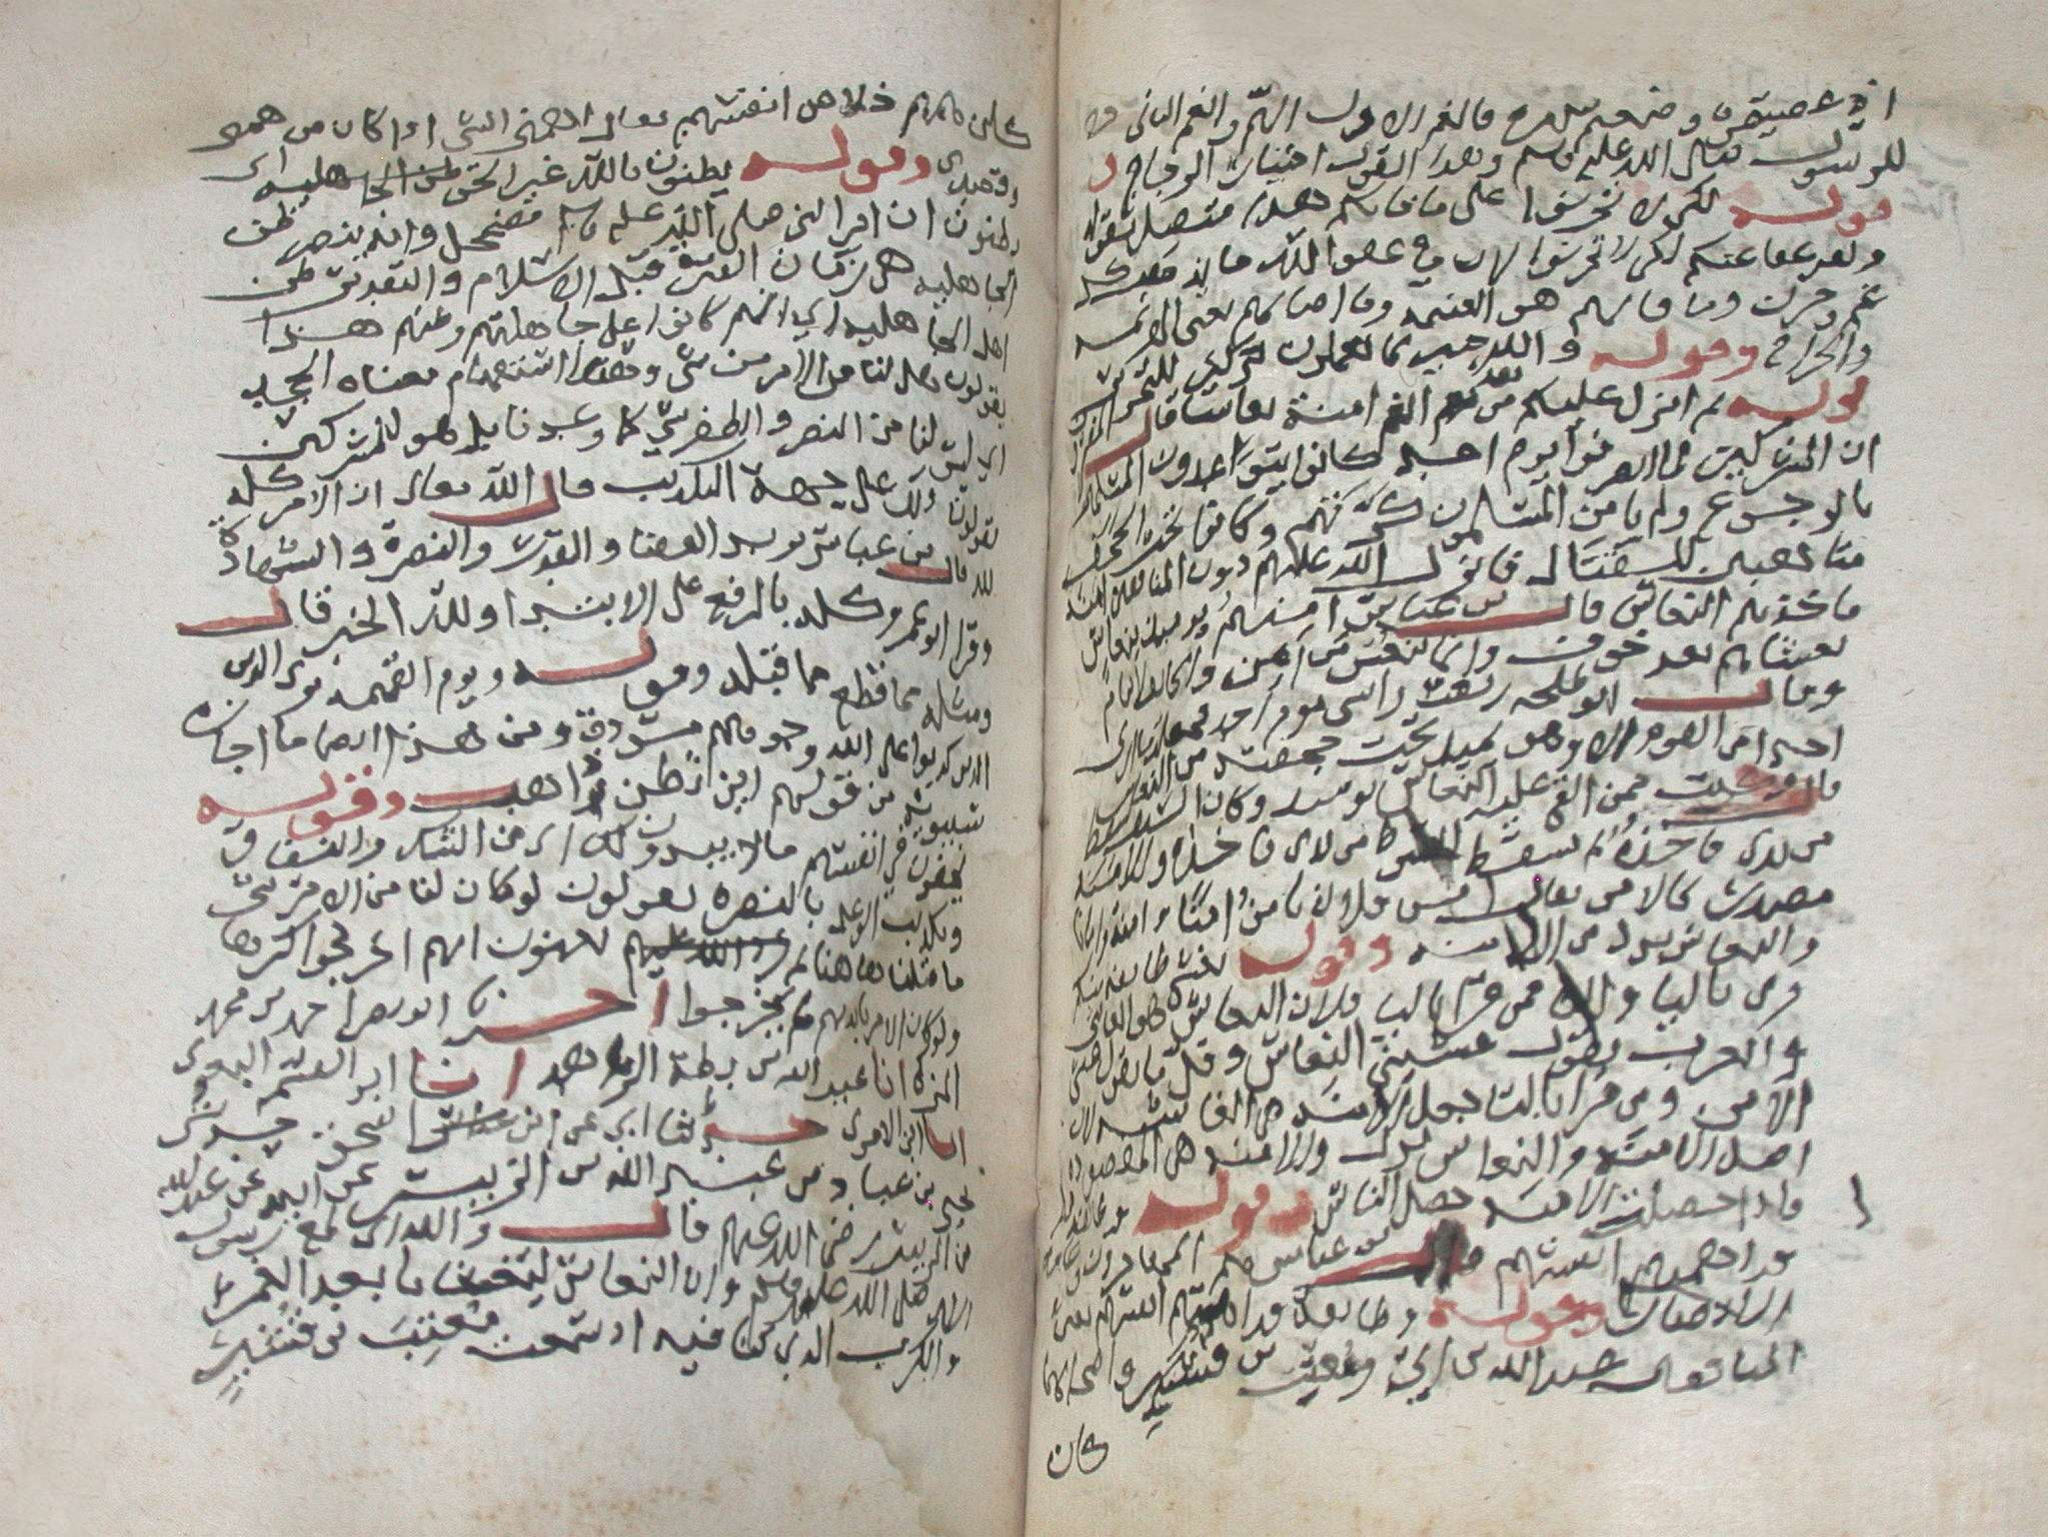 اذ عصيتموه وضيعتم فالغم الاول الهم والغم الثانى
للرسول صلى الله عليه وسلم وهذا القول اختيار الزجاج
قوله لكى لا تحزنوا على ما فاتكم هذا متصل بقوله
ولقد عفا عنكم لكى لا تحزنوا لان فى عفو الله ما يذهب كل
غم وحزن وما فاتهم هو الغنيمة وما اصابهم يعنى الهزيمة
والجراح وقوله والله خبير بما تعملون
قوله ثم انزل عليكم من بعد الغم امنة نعاسا قال
ان المشركين لما انصرفوا يوم احد كانوا يتواعدون المسلمين
بالرجوع ولم يامن المسلمون كرتهم وكانوا تحت الحجف
متاهبين للقتال فانزل الله عليهم دون المنافقين امنة
فاخذهم النعاس قال بن عباس امنهم يومئذ بنعاس
يغشاهم بعد خوف وانما ينعس من امن والخائف لا ينام
وقال ابو طلحة رفعت راسى يوم احد فجعلت ما ارى
احدا من القوم الا وهو يميل تحت حجفته من النعاس
قال وكنت ممن القى عليه النعاس يومئذ وكان السيف يسقط
من يدى فاخذه ثم يسقط السوط من يدى فاخذه والامنة
مصدر كالامن يقال امن فلان يامن امنا وامنة وامانا
والنعاس بدل من الامنة وقوله يغشى طايفة منكم
قرى باليا والتا فمن قرا باليا فلان النعاس هو الغاشى
والعرب يقول غشينى النعاس وقل ما يقول غشينى
الامن ومن قرا بالتا جعل الامنة هى الغاشية لان
اصل الامنة والنعاس بدل والامنة هى المقصودة
فاذا حصلت الامنة حصل النعاس وقوله
قد اهمتهم انفسهم قال بن عباس هم المهاجرون وعامة
الانصار وقوله وطايفة قد اهمتهم انفسهم يعنى
المنافقين عبد الله بن ابى ومعتب بن قشير واصحابهما
كان
همهم خلاص انفسهم يقال اهمنى الشى اذا كان من همى
وقصدى وقوله يظنون بالله غير الحق ظن الجاهلية اى
يظنون ان امر النبى صلى الله عليه وسلم مضمحل وانه لا ينصر ظن
الجاهلية هى زمان الفترة قبل الاسلام والتقدير ظن
اهل الجاهلية اى انهم كانوا على جاهليتهم وظنهم هذا
يقولون هل لنا من الامر من شى وهذا استفهام معناه الجحد
اى ليس لنا من النصر والظفر شى كما وعدنا بل هو للمشركين
يقولون ذلك على جهة التكذيب قال الله تعالى ان الامر كله
لله قال بن عباس يريد القضا والقدر والنصرة والشهادة
وقرا ابو عمرو كله بالرفع على الابتدا ولله الخبر قال
ومثله مما قطع مما قبله وقوله ويوم القيمة ترى الذين
الذين كذبوا على الله وجوههم مسودة ومن هذا ايضا ما اجازه
سيبويه من قولهم اين تظن زيد ذاهب وقوله
يخفون فى انفسهم مالا يبدون لك اى من الشك والنفاق
وتكذيب الوعد بالنصرة يقولون لو كان لنا من الامر شى
ما قتلنا هاهنا يعنون انهم اخرجوا كرها
ولو كان الامر بايديهم ما يخرجوا اخبرنا ابو نصر احمد بن محمد
انا عبيد الله بن بطة الزاهد انا ابو القسم البغوى
انا ابن الاموى حدثنا ابى عن ابن اسحق حدثنى
يحيى بن عباد بن عبد الله بن الزبير عن ابيه عن عبد الله
بن الزبير رضى الله عنهم قال والله انى لمع رسول
الله صلى الله عليه وسلم وان النعاس ليغشانا بعد الغم
والكرب الذى كنا فيه اذ سمعت معتب بن قشير